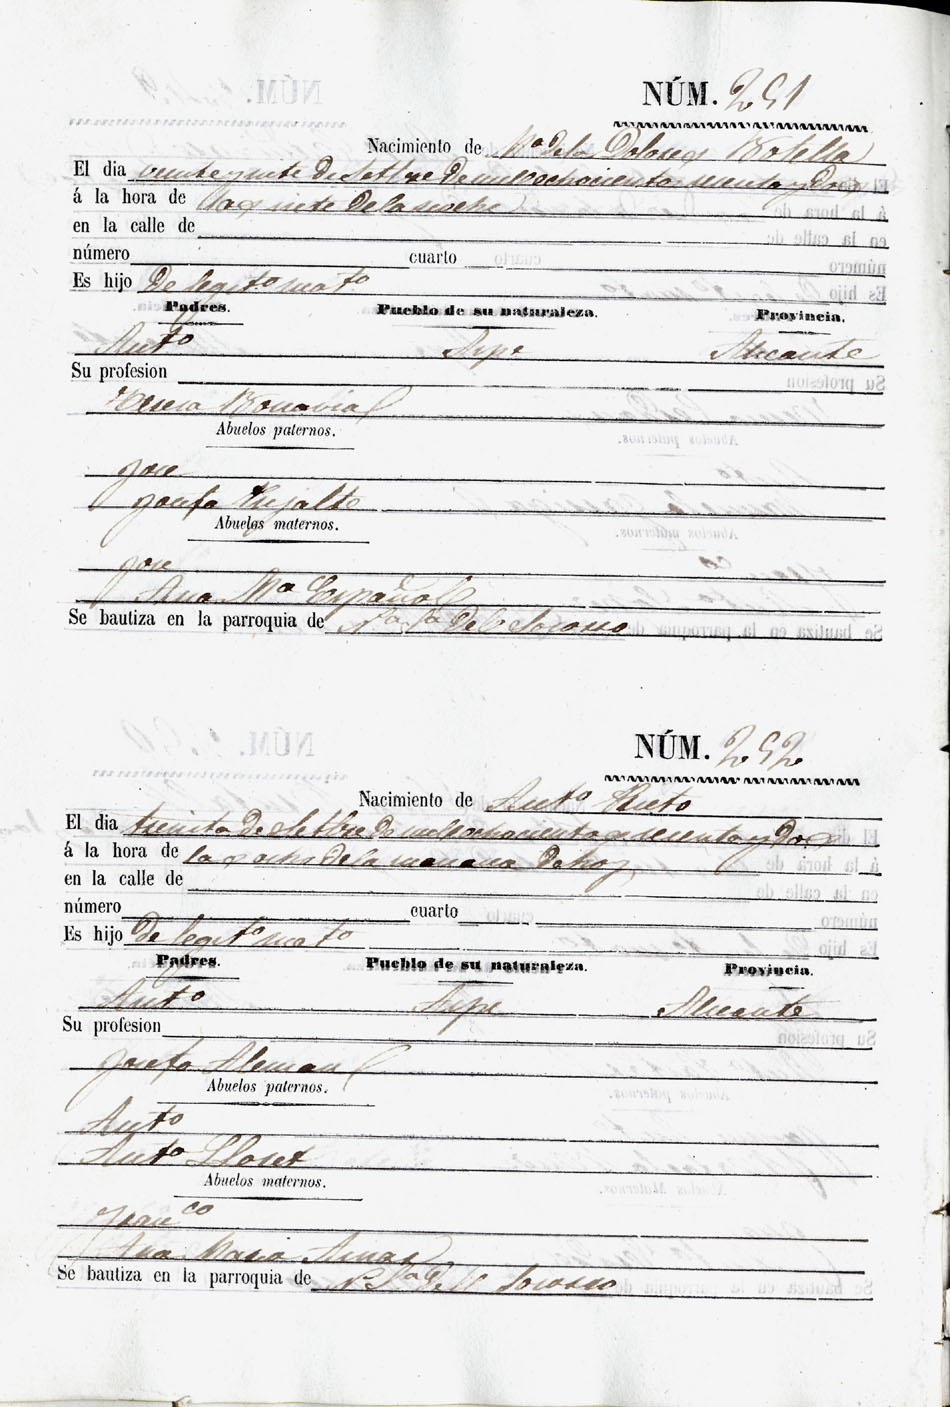 NÚM. 251
Nacimiento de Mª de los Dolores Botella
El dia veinteysiete de Setbre de mil ochocientos sesenta y Dos
á la hora de las siete de la noche
en la calle de
número cuarto
Es hijo De legitº matº
Padres. Pueblo de su naturaleza. Provincia.
Antº Aspe Alicante
Su profesion
Teresa Bonavial
Abuelos paternos.
Jose
Josefa
Abuelos maternos.
Jose
Ana Mª Español
Se bautiza en la parroquia de Nª Sª Del Socorro
NÚM. 252
Nacimiento de Antº
El dia treinta de Setbre de mil ochocientos sesenta y Dos
á la hora de las ocho de la manana De hoy
en la calle de
número cuarto
Es hijo De legitº matº
Padres. Pueblo de su naturaleza. Provincia.
Antº Aspe Alicante
Su profesion
Josefa Aleman
Abuelos paternos.
Antº
Antª Lloret
Abuelos maternos.
Franᶜᵒ
Ana Maria
Se bautiza en la parroquia de Nª Sª del Socorro